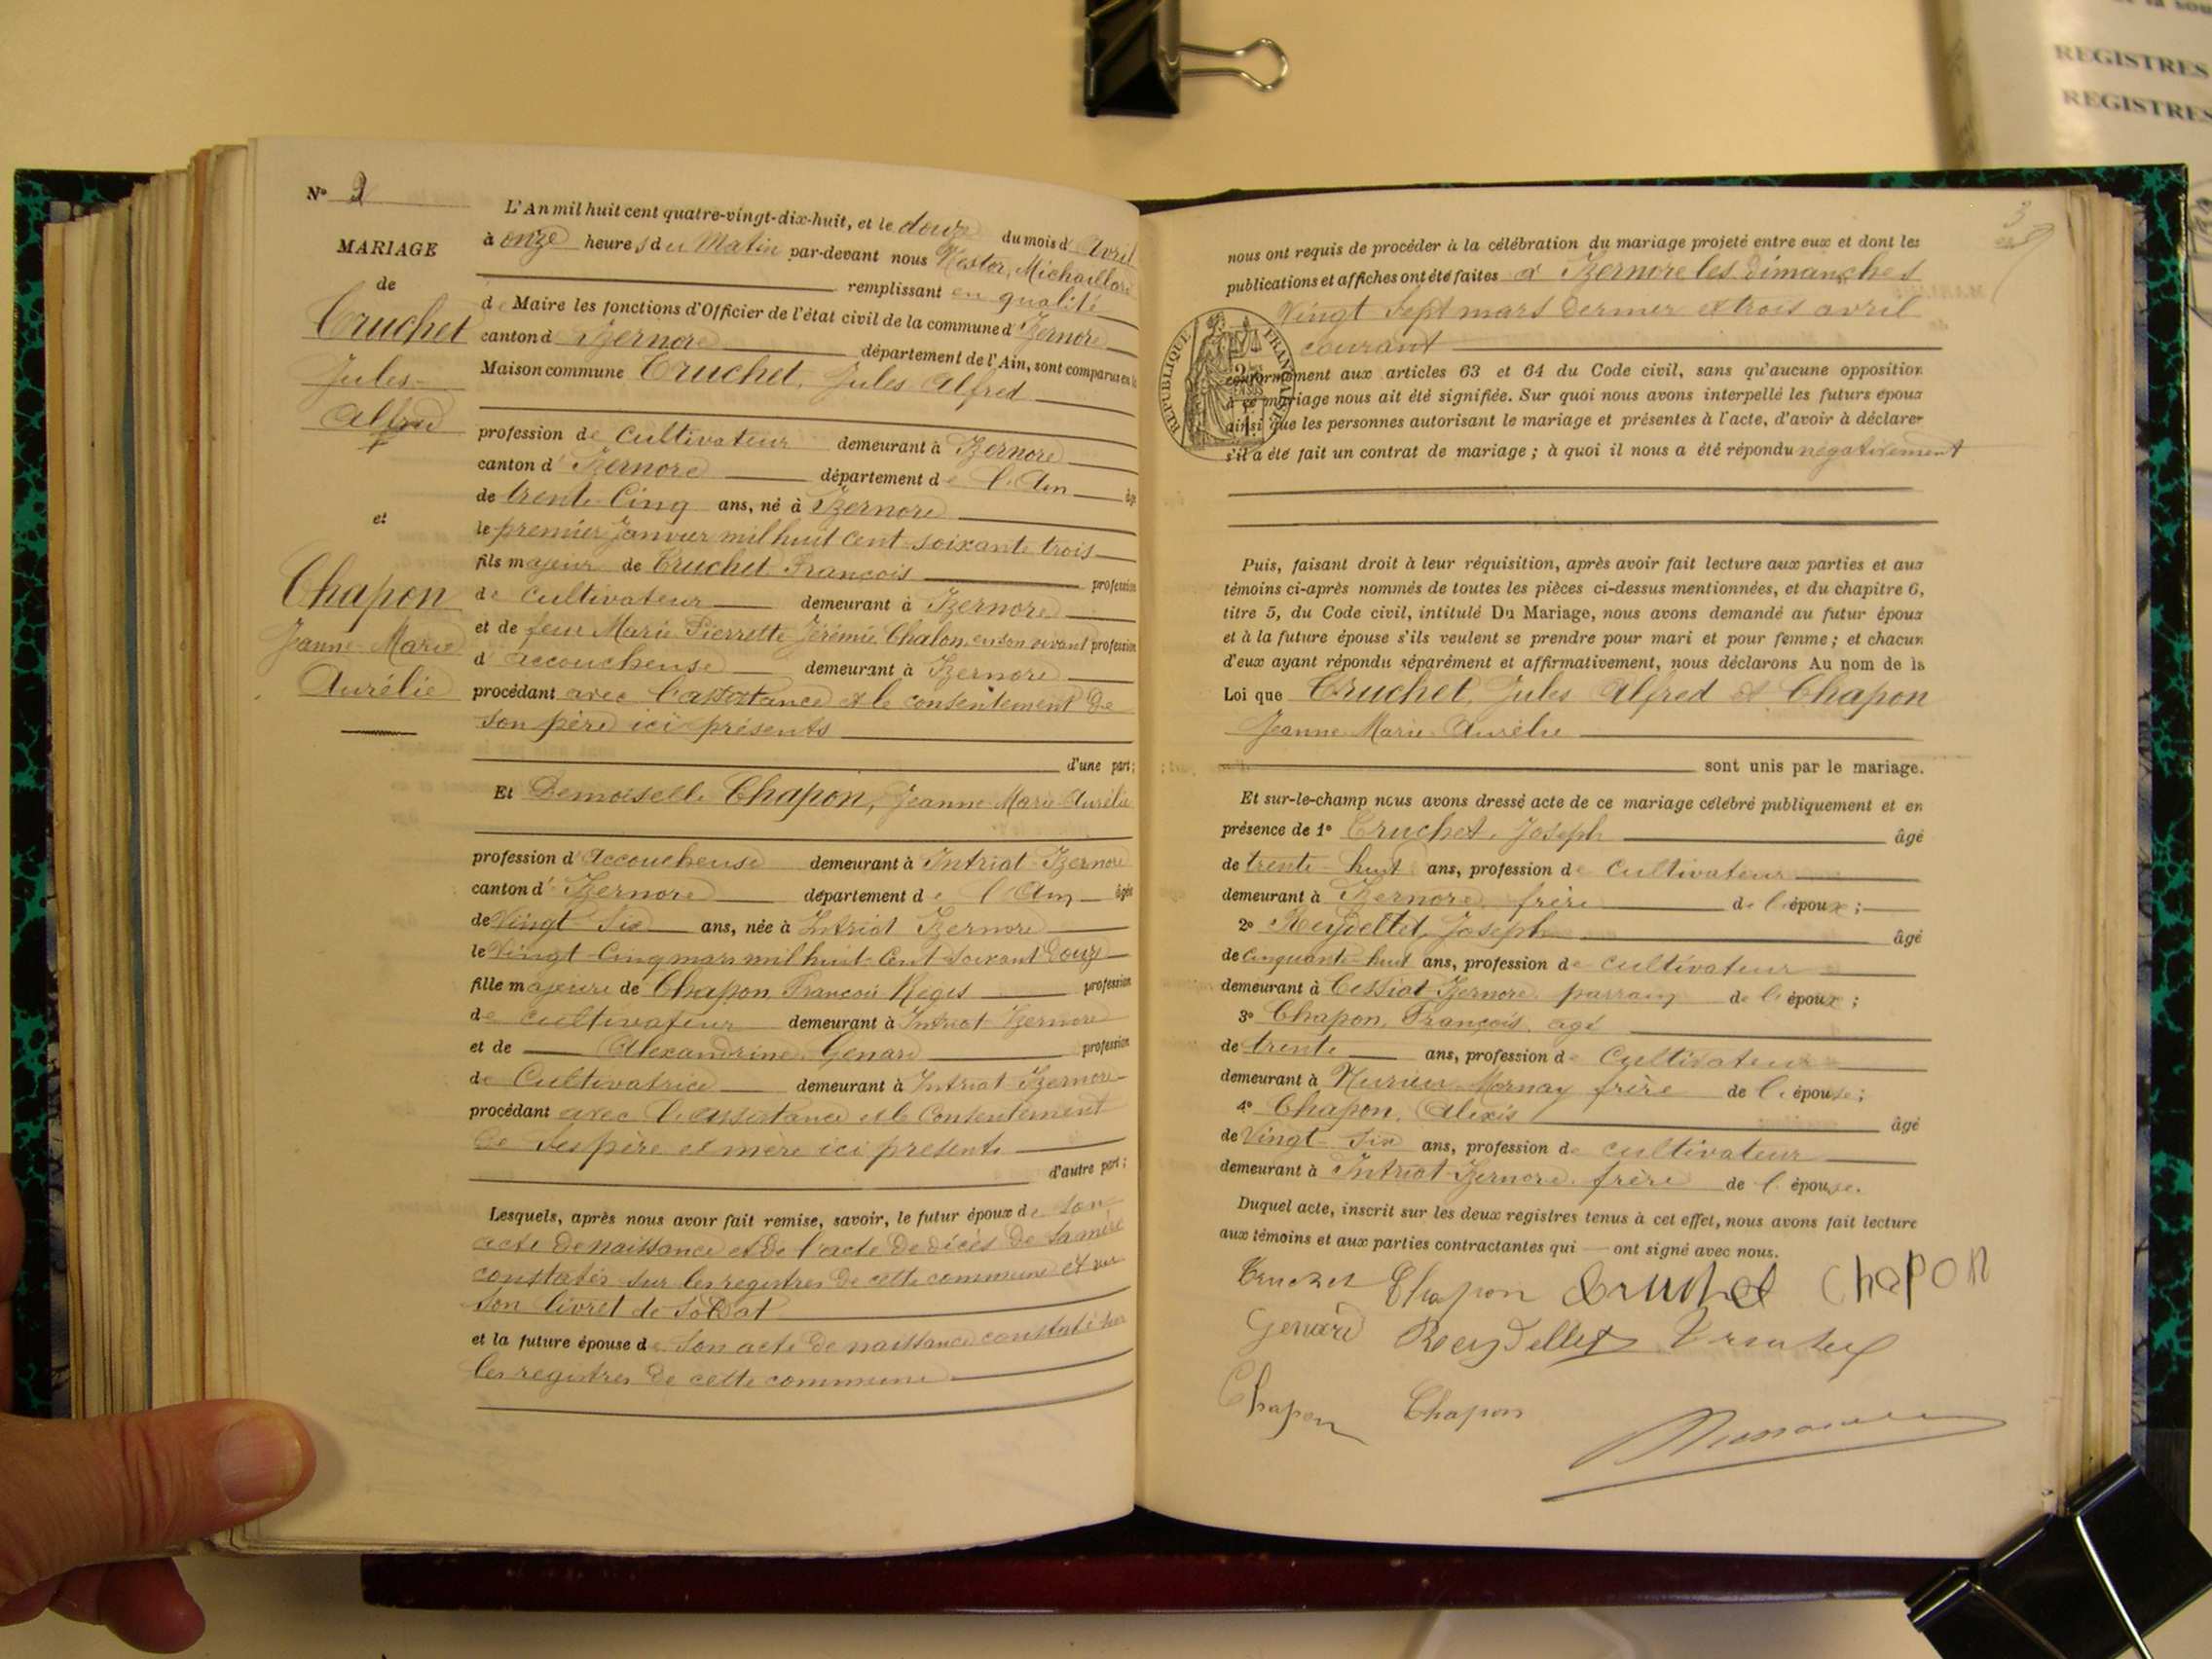 N° 2
MARIAGE
de
Truchet
Jules
Alfred
et
Chapon
Jeanne Marie
Aurélie
L'An mil huit cent quatre-vingt-dix-huit, et le douze du mois d'Avril
à onze heures du Matin par-devant nous Nestor, Michaillard
remplissant en qualité
de Maire les fonctions d'Officier de l'état civil de la commune d'Izernore
canton d'Izernore département de l'Ain, sont comparus en la
Maison commune Truchet, Jules Alfred
profession de Cultivateur demeurant à Izernore
canton d'Izernore département de l'Ain âgé
de trente-Cinq ans, né à Izernore
le premier Janvier mil huit cent soixante trois
fils majeur de Truchet François profession
de cultivateur demeurant à Izernore
et de feue Marie Pierrette Jérémie Chalon, en son vivant profession
d'accoucheuse demeurant à Izernore
procédant avec l'assistance et le consentement de
son père ici présents
d'une part;
Et Demoiselle Chapon, Jeanne Marie Aurélie
profession d'Accoucheuse demeurant à Intriat-Izernore
canton d'Izernore département de l'Ain âgée
de Vingt-Six ans, née à Intriat Izernore
le Vingt-Cinq mars mil huit-Cent-Soixant Douze
fille majeure de Chapon François Regis profession
de cultivateur demeurant à Intriat Izernore
et de Alexandrine Genard profession
de Cultivatrice demeurant à Intriat-Izernore
procédant avec l'assistance et le Consentement
de Ses père et mère ici présents
d'autre part;
Lesquels, après nous avoir fait remise, savoir, le futur époux de son
acte de naissance et de l'acte de décès de sa mère
constatés sur les registres de cette commune et vu
Son livret de Soldat
et la future épouse de Son acte de naissance constaté sur
les registres de cette commune
3
nous ont requis de procéder à la célébration du mariage projeté entre eux et dont les
publications et affiches ont été faites à Izernore les Dimanches
Vingt Sept mars dernier et trois avril
courant
RÉPUBLIQUE FRANÇAISE
conformément aux articles 63 et 64 du Code civil, sans qu'aucune opposition
à ce mariage nous ait été signifiée. Sur quoi nous avons interpellé les futurs époux
ainsi que les personnes autorisant le mariage et présentes à l'acte, d'avoir à déclarer
s'il a été fait un contrat de mariage; à quoi il nous a été répondu négativement
Puis, faisant droit à leur réquisition, après avoir fait lecture aux parties et aux
témoins ci-après nommés de toutes les pièces ci-dessus mentionnées, et du chapitre 6,
titre 5, du Code civil, intitulé Du Mariage, nous avons demandé au futur époux
et à la future épouse s'ils veulent se prendre pour mari et pour femme; et chacun
d'eux ayant répondu séparément et affirmativement, nous déclarons Au nom de la
Loi que Truchet, Jules Alfred et Chapon
Jeanne Marie Aurélie
sont unis par le mariage.
Et sur-le-champ nous avons dressé acte de ce mariage célébré publiquement et en
présence de 1° Truchet, Joseph âgé
de trente-huit ans, profession de Cultivateur
demeurant à Izernore, frère de l'époux;
2° Reydellet, Joseph âgé
de cinquante-huit ans, profession de cultivateur
demeurant à Cessiat Izernore, parrain de l'époux;
3° Chapon, François, agé
de trente ans, profession de Cultivateur
demeurant à Nurieux Mornay frère de l'épouse;
4° Chapon, Alexis âgé
de Vingt-Six ans, profession de cultivateur
demeurant à Intriat-Izernore, frère de l'épouse.
Duquel acte, inscrit sur les deux registres tenus à cet effet, nous avons fait lecture
aux témoins et aux parties contractantes qui — ont signé avec nous.
Truchet Chapon Truchet Chapon
Genard Reydellet Truchet
Chapon Chapon
REGISTRES
REGISTRES